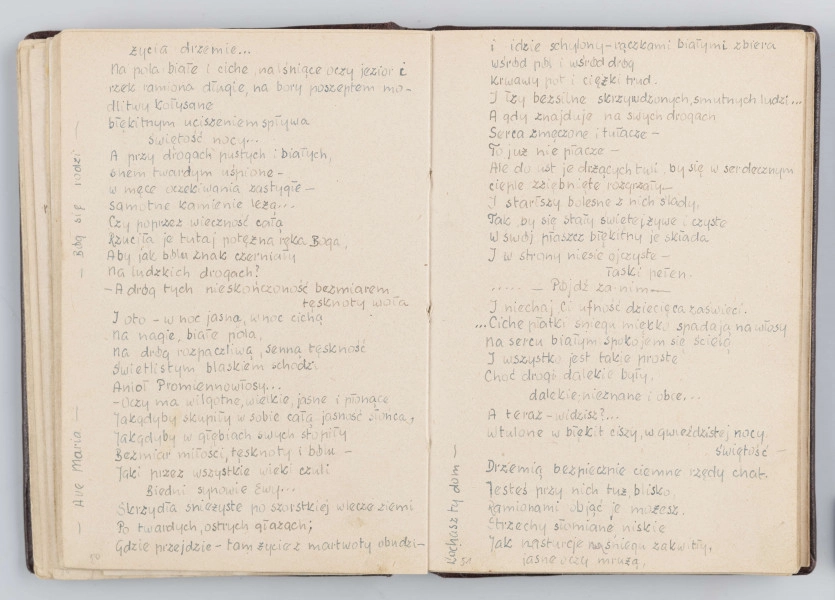 życia drzemie...
Na pola białe i ciche, na lśniące oczy jezior i
rzek ramiona długie, na bory poszeptem mo-
dlitwy kołysane
błękitnym uciszeniem spływa
świętość nocy...
A przy drogach pustych i białych,
snem twardym uśpione -
w męce oczekiwania zastygłe -
samotne kamienie leżą...
Czy poprzez wieczność całą
Rzuciła je tutaj potężna ręka Boga,
Aby jak bólu znak czerniały
na ludzkich drogach?
- A dróg tych nieskończoność bezmiarem
tęsknoty woła
I oto - w noc jasną, w noc cichą
na nagie, białe pola,
na dróg rozpaczliwą, senną tęskność
świetlistym blaskiem schodzi
Anioł Promiennowłosy...
- Oczy ma wilgotne, wielkie, jasne i płonące
Jakgdyby skupiły w sobie całą jasność słońca,
Jakgdyby w głębiach swych stopiły
Bezmiar miłości, tęsknoty i bólu -
Jaki przez wszystkie wieki czuli
Biedni synowie Ewy...
Skrzydła śnieżyste po szorstkiej wlecze ziemi
Po twardych, ostrych głazach;
Gdzie przejdzie - tam życie z martwoty obudzi -
— Ave Maria —
— Bóg się rodzi —
50
i idzie schylony - rączkami białymi zbiera
wśród pól i wśród dróg
Krwawy pot i ciężki trud.
I łzy bezsilne skrzywdzonych, smutnych ludzi...
A gdy znajduje na swych drogach
Serca zmęczone i tułacze -
To już nie płacze -
Ale do ust je drżących tuli, by się w serdecznym
cieple zziębnięte rozgrzały -
I starłszy bolesne z nich ślady,
Tak, by się stały święte, żywe i czyste
W swój płaszcz błękitny je składa
I w strony niesie ojczyste -
łaski pełen.
..... — Pójdź za nim —
I niechaj Ci ufność dziecięca zaświeci.
...Ciche płatki śniegu miękko spadają na włosy
Na sercu białym spokojem się ścielą
I wszystko jest takie proste
Choć drogi dalekie były,
dalekie - nieznane i obce...
A teraz - widzisz?...
wtulone w błękit ciszy, w gwieździstej nocy
świętość -
Drzemią bezpiecznie ciemne rzędy chat.
Jesteś przy nich tuż, blisko,
Ramionami objąć je możesz.
Strzechy słomiane niskie
Jak nasturcje na śniegu zakwitły,
jasne oczy mrużą,
Kochasz ty dom —
51